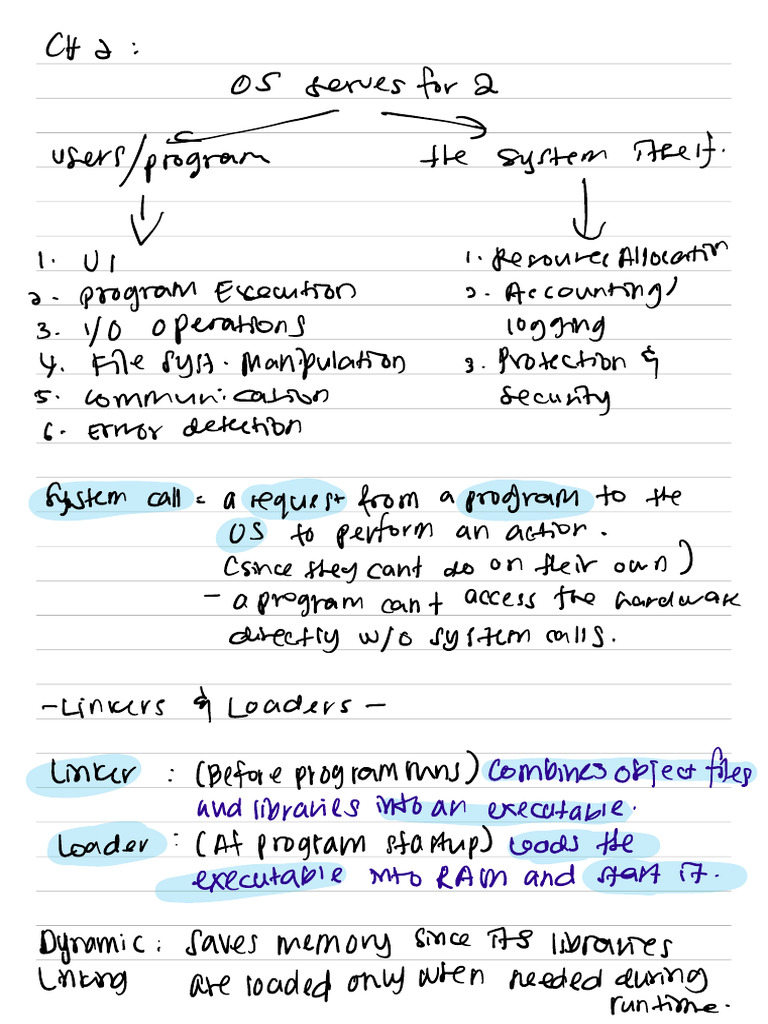 CH 2 :
OS serves for 2
users/program
the system itself.
1. UI
2. program Execution
3. I/O operations
4. File syst. Manipulation
5. communication
6. Error detection
1. Resource Allocation
2. Accounting/
logging
3. Protection &
Security
System call = a request from a program to the
OS to perform an action.
(since they cant do on their own)
- a program can't access the hardware
directly w/o system calls.
-Linkers & Loaders-
Linker : (Before program runs) combines object files
and libraries into an executable.
Loader : (At program startup) loads the
executable into RAM and start it.
Dynamic : saves memory since its libraries
Linking are loaded only when needed during
runtime.